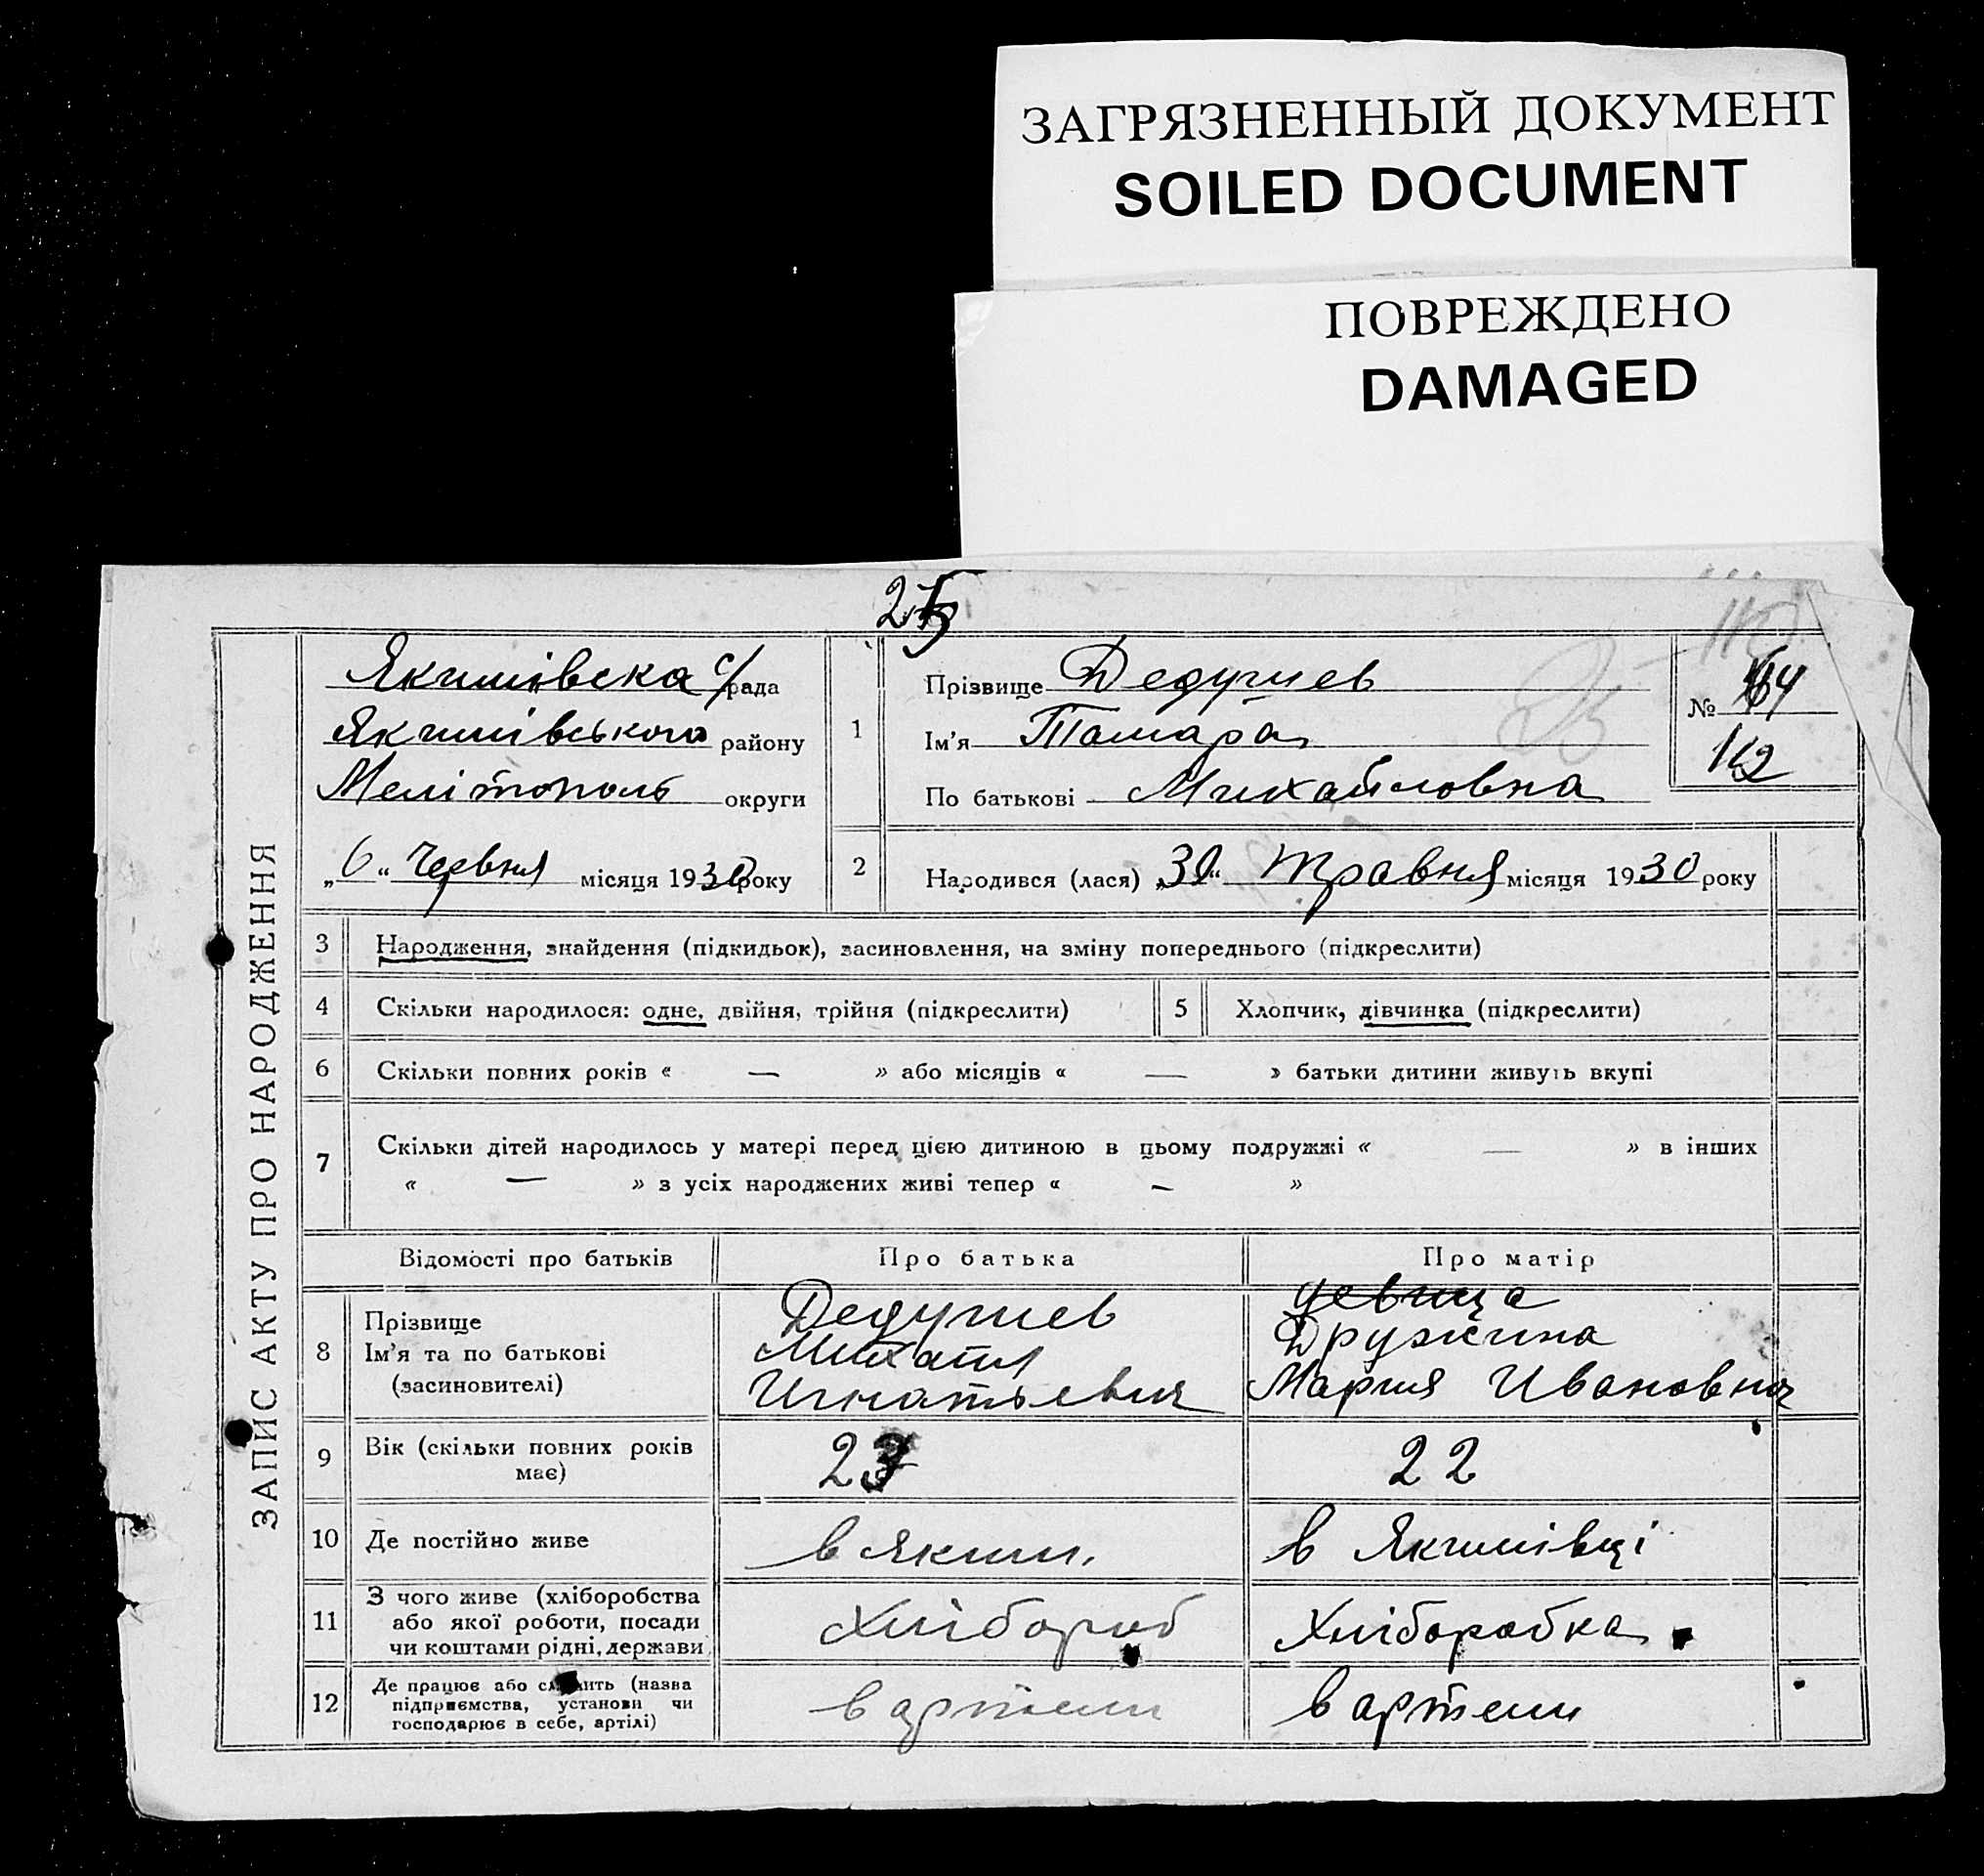 ЗАГРЯЗНЕННЫЙ ДОКУМЕНТ
SOILED DOCUMENT
ПОВРЕЖДЕНО
DAMAGED
ЗАПИС АКТУ ПРО НАРОДЖЕННЯ
Якимівска с/рада
Якимівського району
Мелітополь округи
„6“ Червня місяця 1930 року
1
Прізвище Дедушев
Ім'я Тамара
По батькові Михайловна
№
112
2
Народився (лася) „30“ Травня місяця 1930 року
3 Народження, знайдення (підкидьок), засиновлення, на зміну попереднього (підкреслити)
4 Скільки народилося: одне, двійня, трійня (підкреслити) 5 Хлопчик, дівчинка (підкреслити)
6 Скільки повних років « — » або місяців « — » батьки дитини живуть вкупі
7 Скільки дітей народилось у матері перед цією дитиною в цьому подружжі « — » в інших
« — » з усіх народжених живі тепер « — »
Відомості про батьків Про батька Про матір
8 Прізвище
Ім'я та по батькові
(засиновителі)
Дедушев
Михаил
Игнатьевич
девица
Дружина
Мария Ивановна
9 Вік (скільки повних років
має)
23
22
10 Де постійно живе в Яким. в Якимівці
11 З чого живе (хліборобства
або якої роботи, посади
чи коштами рідні, держави
Хлібороб
Хліборобка
12 Де працює або служить (назва
підприємства, установи чи
господарює в себе, артілі)
в артели
в артели